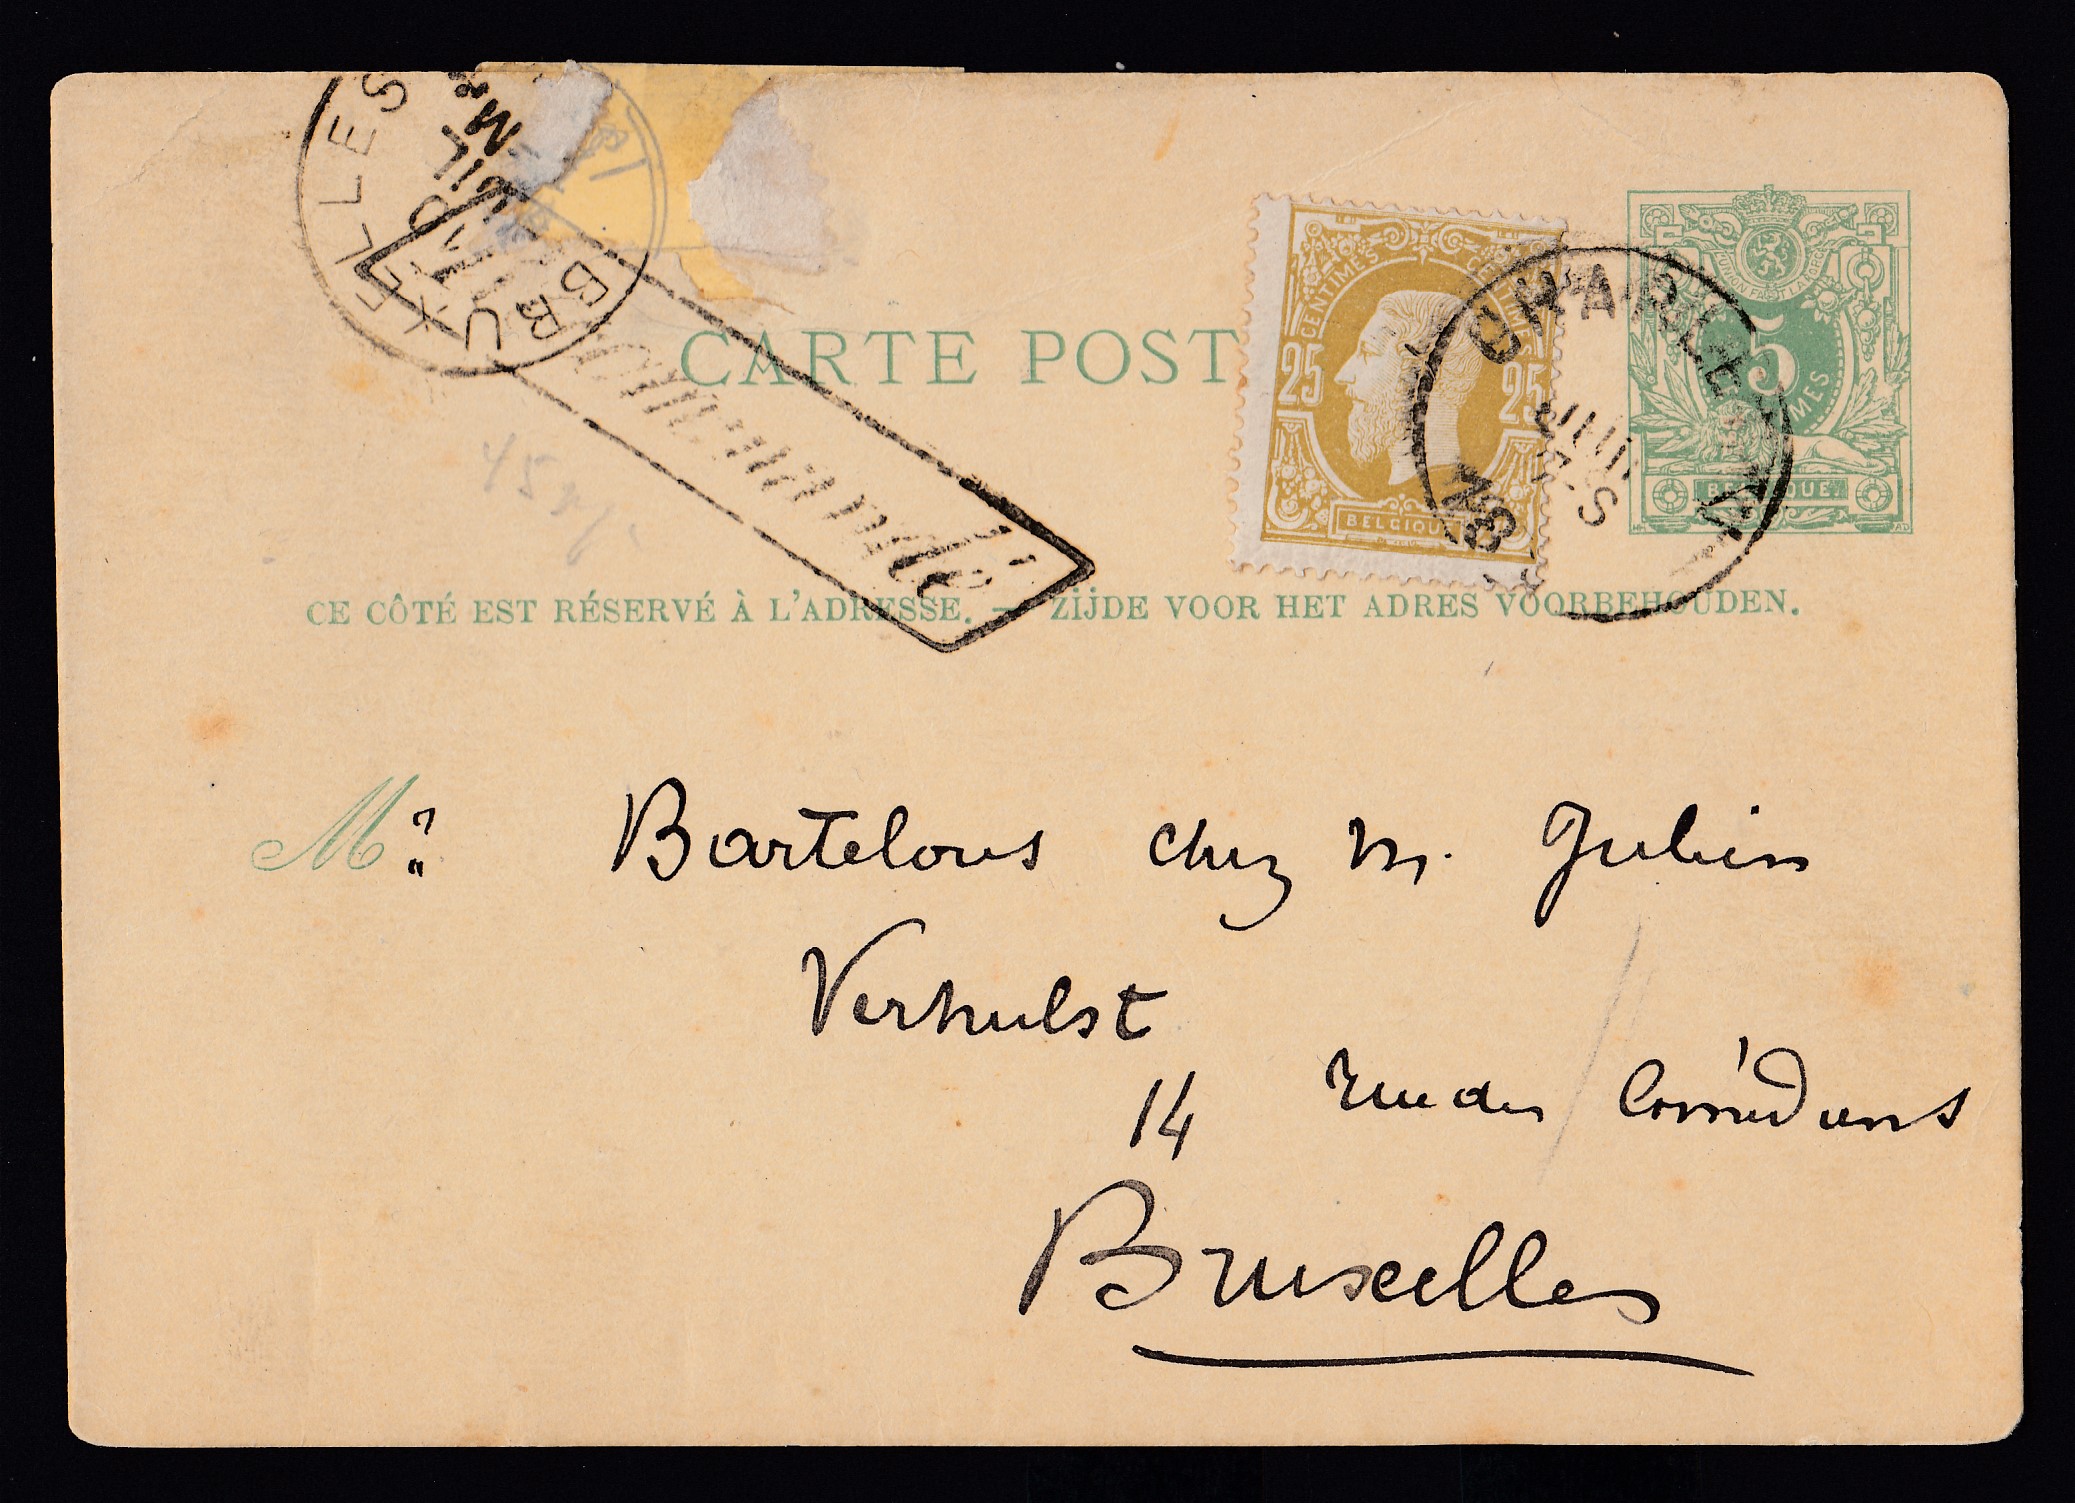 BRUXELLES
Recommandé
CARTE POST
CENTIMES CENTIMES
25 25
BELGIQUE
CHARLEROI
JUIN
7-S
L'UNION FAIT LA FORCE
5
BELGIQUE
CE CÔTÉ EST RÉSERVÉ À L'ADRESSE. — ZIJDE VOOR HET ADRES VOORBEHOUDEN.
Mr Bartelous chez M. Julien
Verhulst
14 rue des Comédiens
Bruxelles